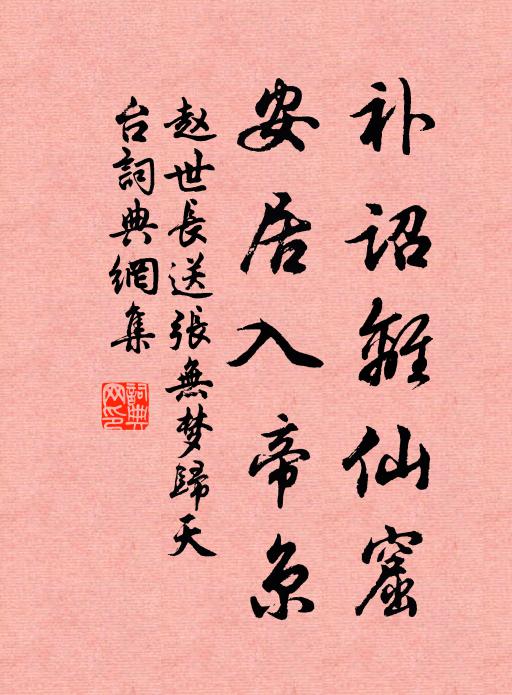 补诏離仙窟
安居入帝京
赵世長送張無梦歸天
台詞典網集
詞典
网印